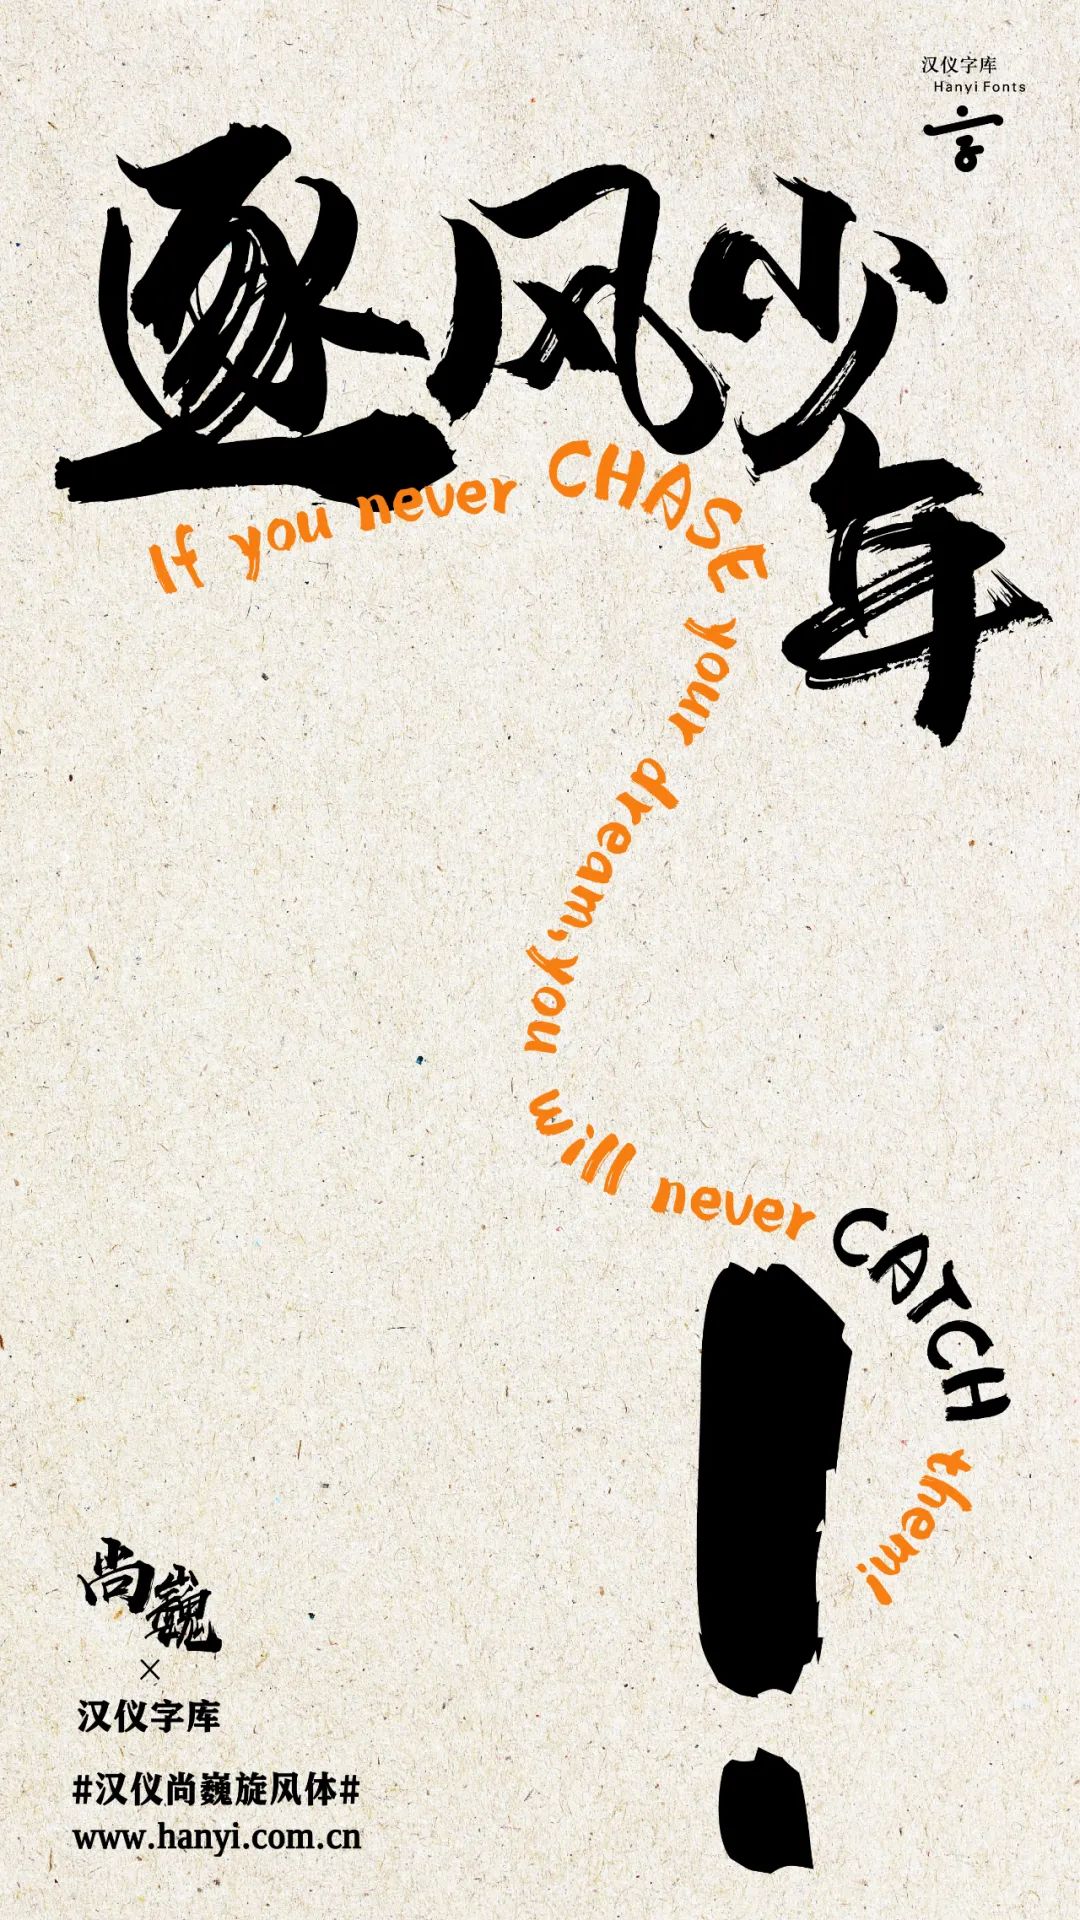 汉仪字库
Hanyi Fonts
逐风少年
If you never CHASE your dream,you will never CATCH them!
!
尚巍
×
汉仪字库
#汉仪尚巍旋风体#
www.hanyi.com.cn